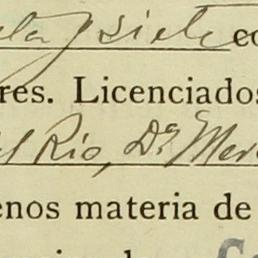 y siete co
res. Licenciados
el Rio, Dª Mer
enos materia de